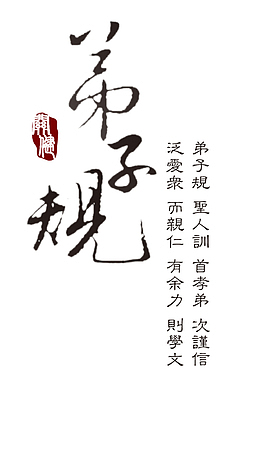 弟子規
弟子規 聖人訓 首孝弟 次謹信
泛愛衆 而親仁 有余力 則學文